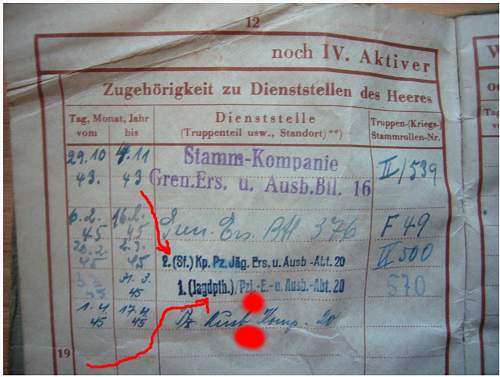 12
noch IV. Aktiver
W
Zugehörigkeit zu Dienststellen des Heeres
Tag, Monat, Jahr
vom bis
Dienststelle
(Truppenteil usw., Standort) **)
Truppen-(Kriegs-)
Stammrollen-Nr.
29.10 7.11 Stamm-Kompanie II/539
43. 43 Gren.Ers. u. Ausb.Btl. 16
6.2. 16.2. Ers. Btl 376 F 49
45 45
20.2. 2.3. 2.(Sf.) Kp. Pz. Jäg. Ers. u. Ausb.-Abt. 20 II 500
45 45
31.3. 1.(Jagdpth.) Pzj.-E.-u. Ausb.-Abt. 20 570
45
1.4 17.4 Pz Komp. 20
45 45
19